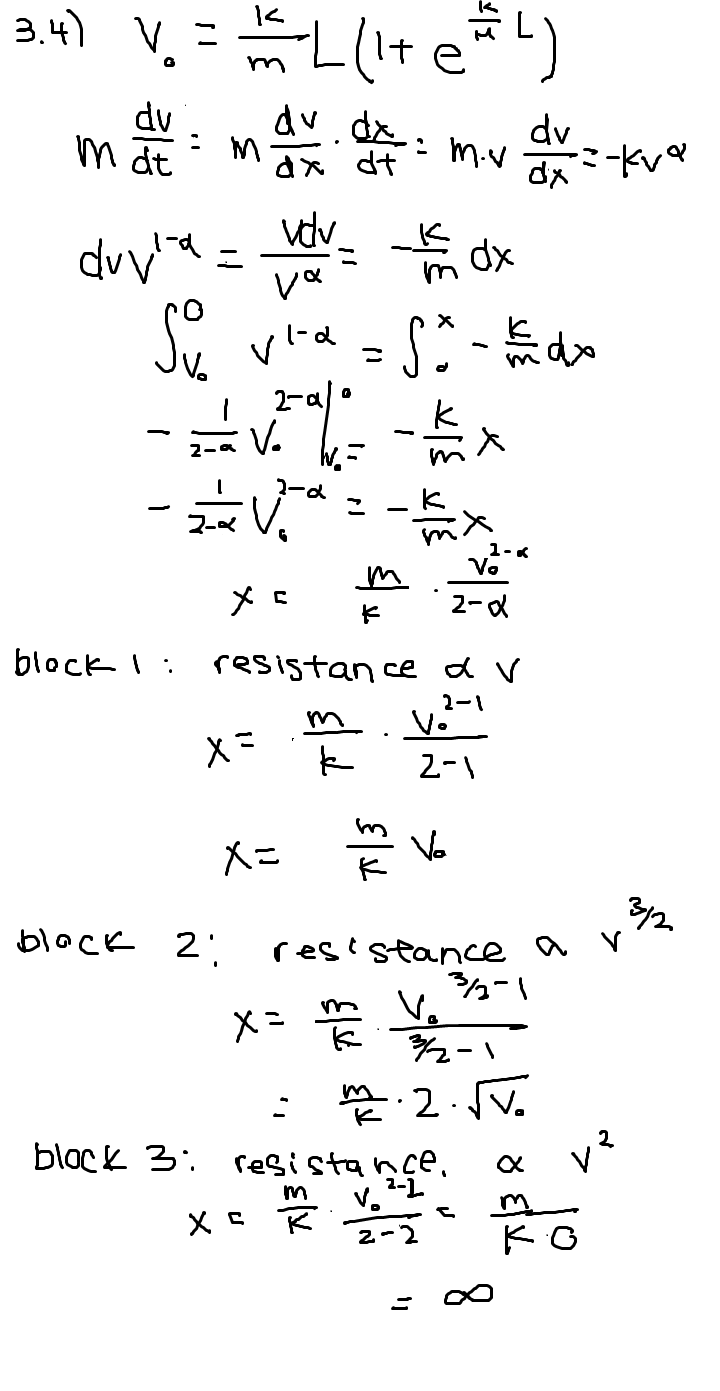 3.4) V₀ = k/m L(1 + e^(k/m L))
m dv/dt = m dv/dx · dx/dt = m·v dv/dx = -kv^α
dv v^(1-α) = vdv/v^α = -k/m dx
∫_(V₀)^0 v^(1-α) = ∫_0^x - k/m dx
- 1/(2-α) V₀^(2-α) |_(V₀)^0 = - k/m x
- 1/(2-α) V₀^(2-α) = - k/m x
x = m/k · V₀^(2-α)/(2-α)
block 1: resistance α v
x = m/k · V₀^(2-1)/(2-1)
x = m/k V₀
block 2: resistance α v^(3/2)
x = m/k · V₀^(3/2-1)/(3/2-1)
= m/k · 2 · √V₀
block 3: resistance. α v^2
x = m/k · V₀^(2-2)/(2-2) = m/(k·0)
= ∞